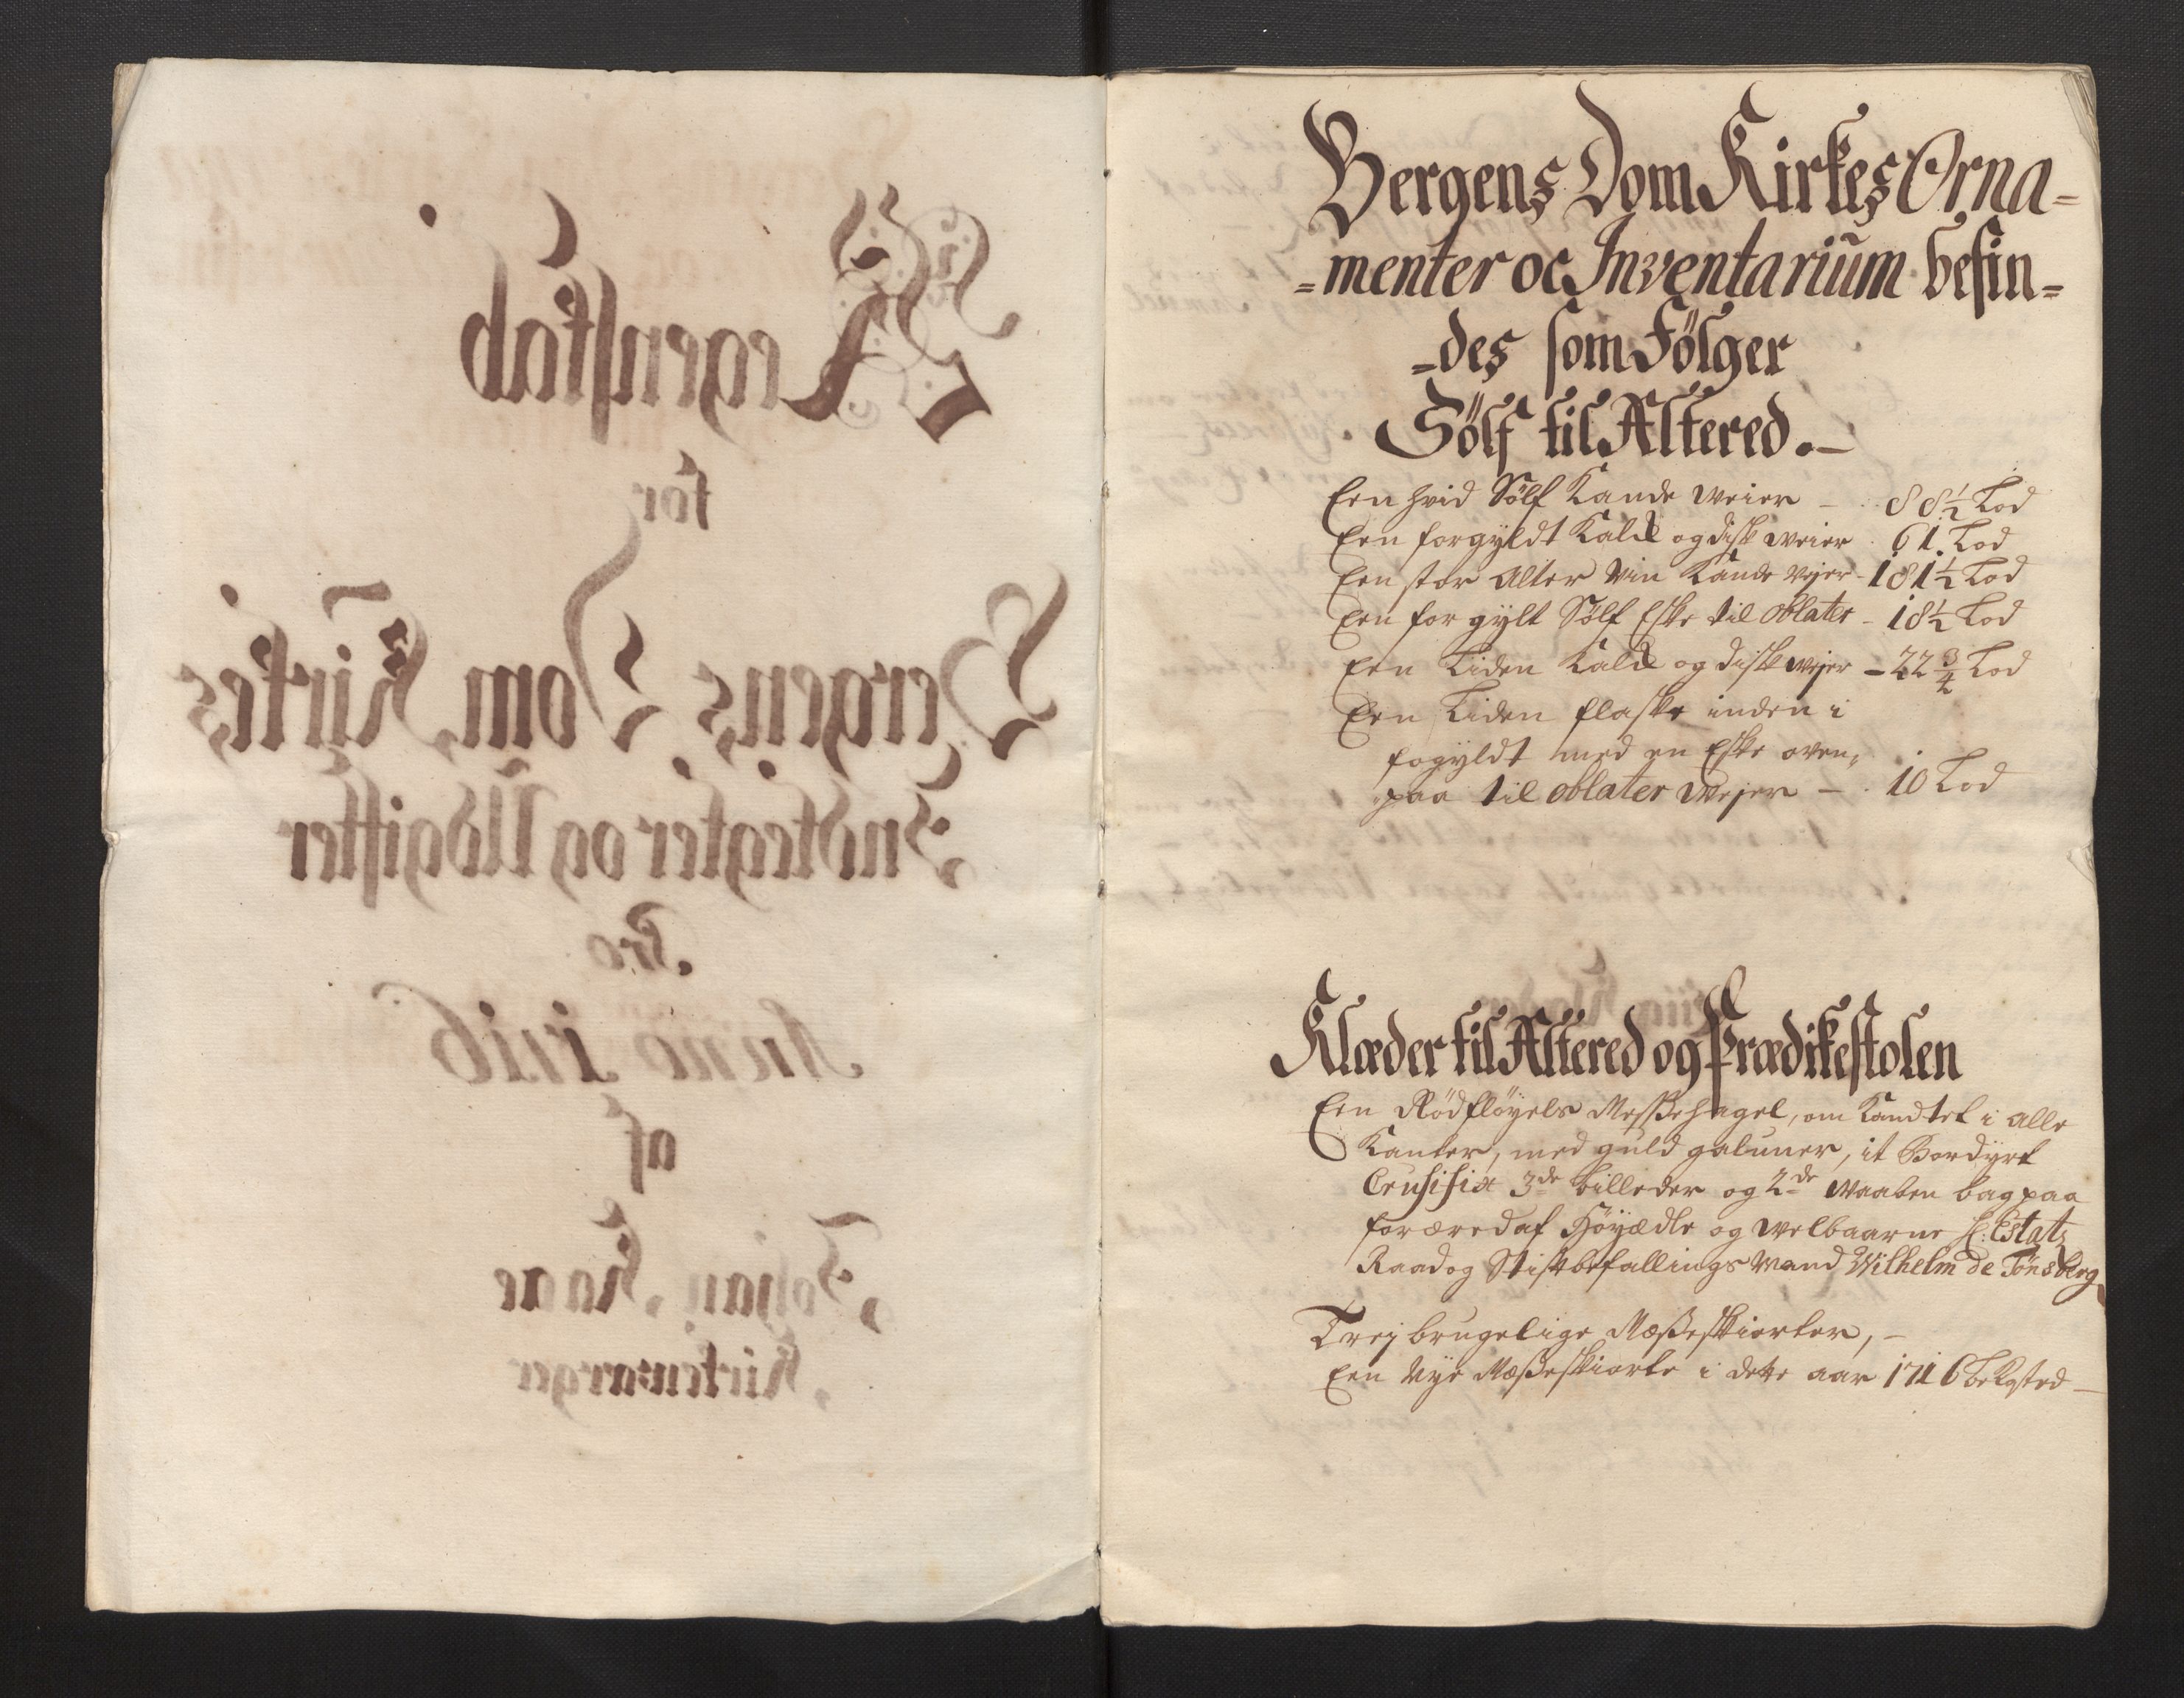 Regenskab
for
Bergens Dom Kirkes
Indtegter og Udgifter
Pro
Anno 1716
af
Johan
Kirkeværger
Bergens Dom Kirkes Orna=
=menter oc Inventarium befin=
=des som Fölger
Sölf til Altered.
Een hvid Sölf Kande weier — 88½ Lod
Een forgyldt Kalck og disk weier 61. Lod
Een stor Alter Vin Kande wejer - 181½ Lod
Een forgylt Sölf Eske til oblater - 18½ Lod
Een Liden Kalck og disk wejer - 22¾ Lod
Een Liden flaske inden i
fogyldt med en Eske oven,
paa til oblater wejer — 10 Lod
Klæder til Altered og Prædikestolen
Een Rödfløyels Messehagel, om Kandtet i alle
Kanter, med guld galuner, it Bordyrt
Crusifix 3de billeder og 2de Waaben bag paa
foræred af Höyædle og Welbaarne H: Estats
Raad og Stiftbefallings Mand Wilhelm de Tönsberg
Trej brugelige Messeskiorter, —
Een Nye Messeskiorte i dette aar 1716 bekosted —